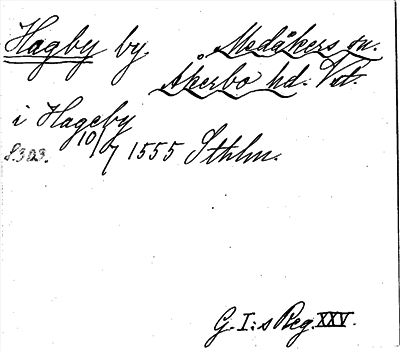 Hagby by Medåkers sn.
Åkerbo hd. Vstm.
i Hageby
S. 303. 10/7 1555 Sthlm.
G. I:s Reg. XXV.